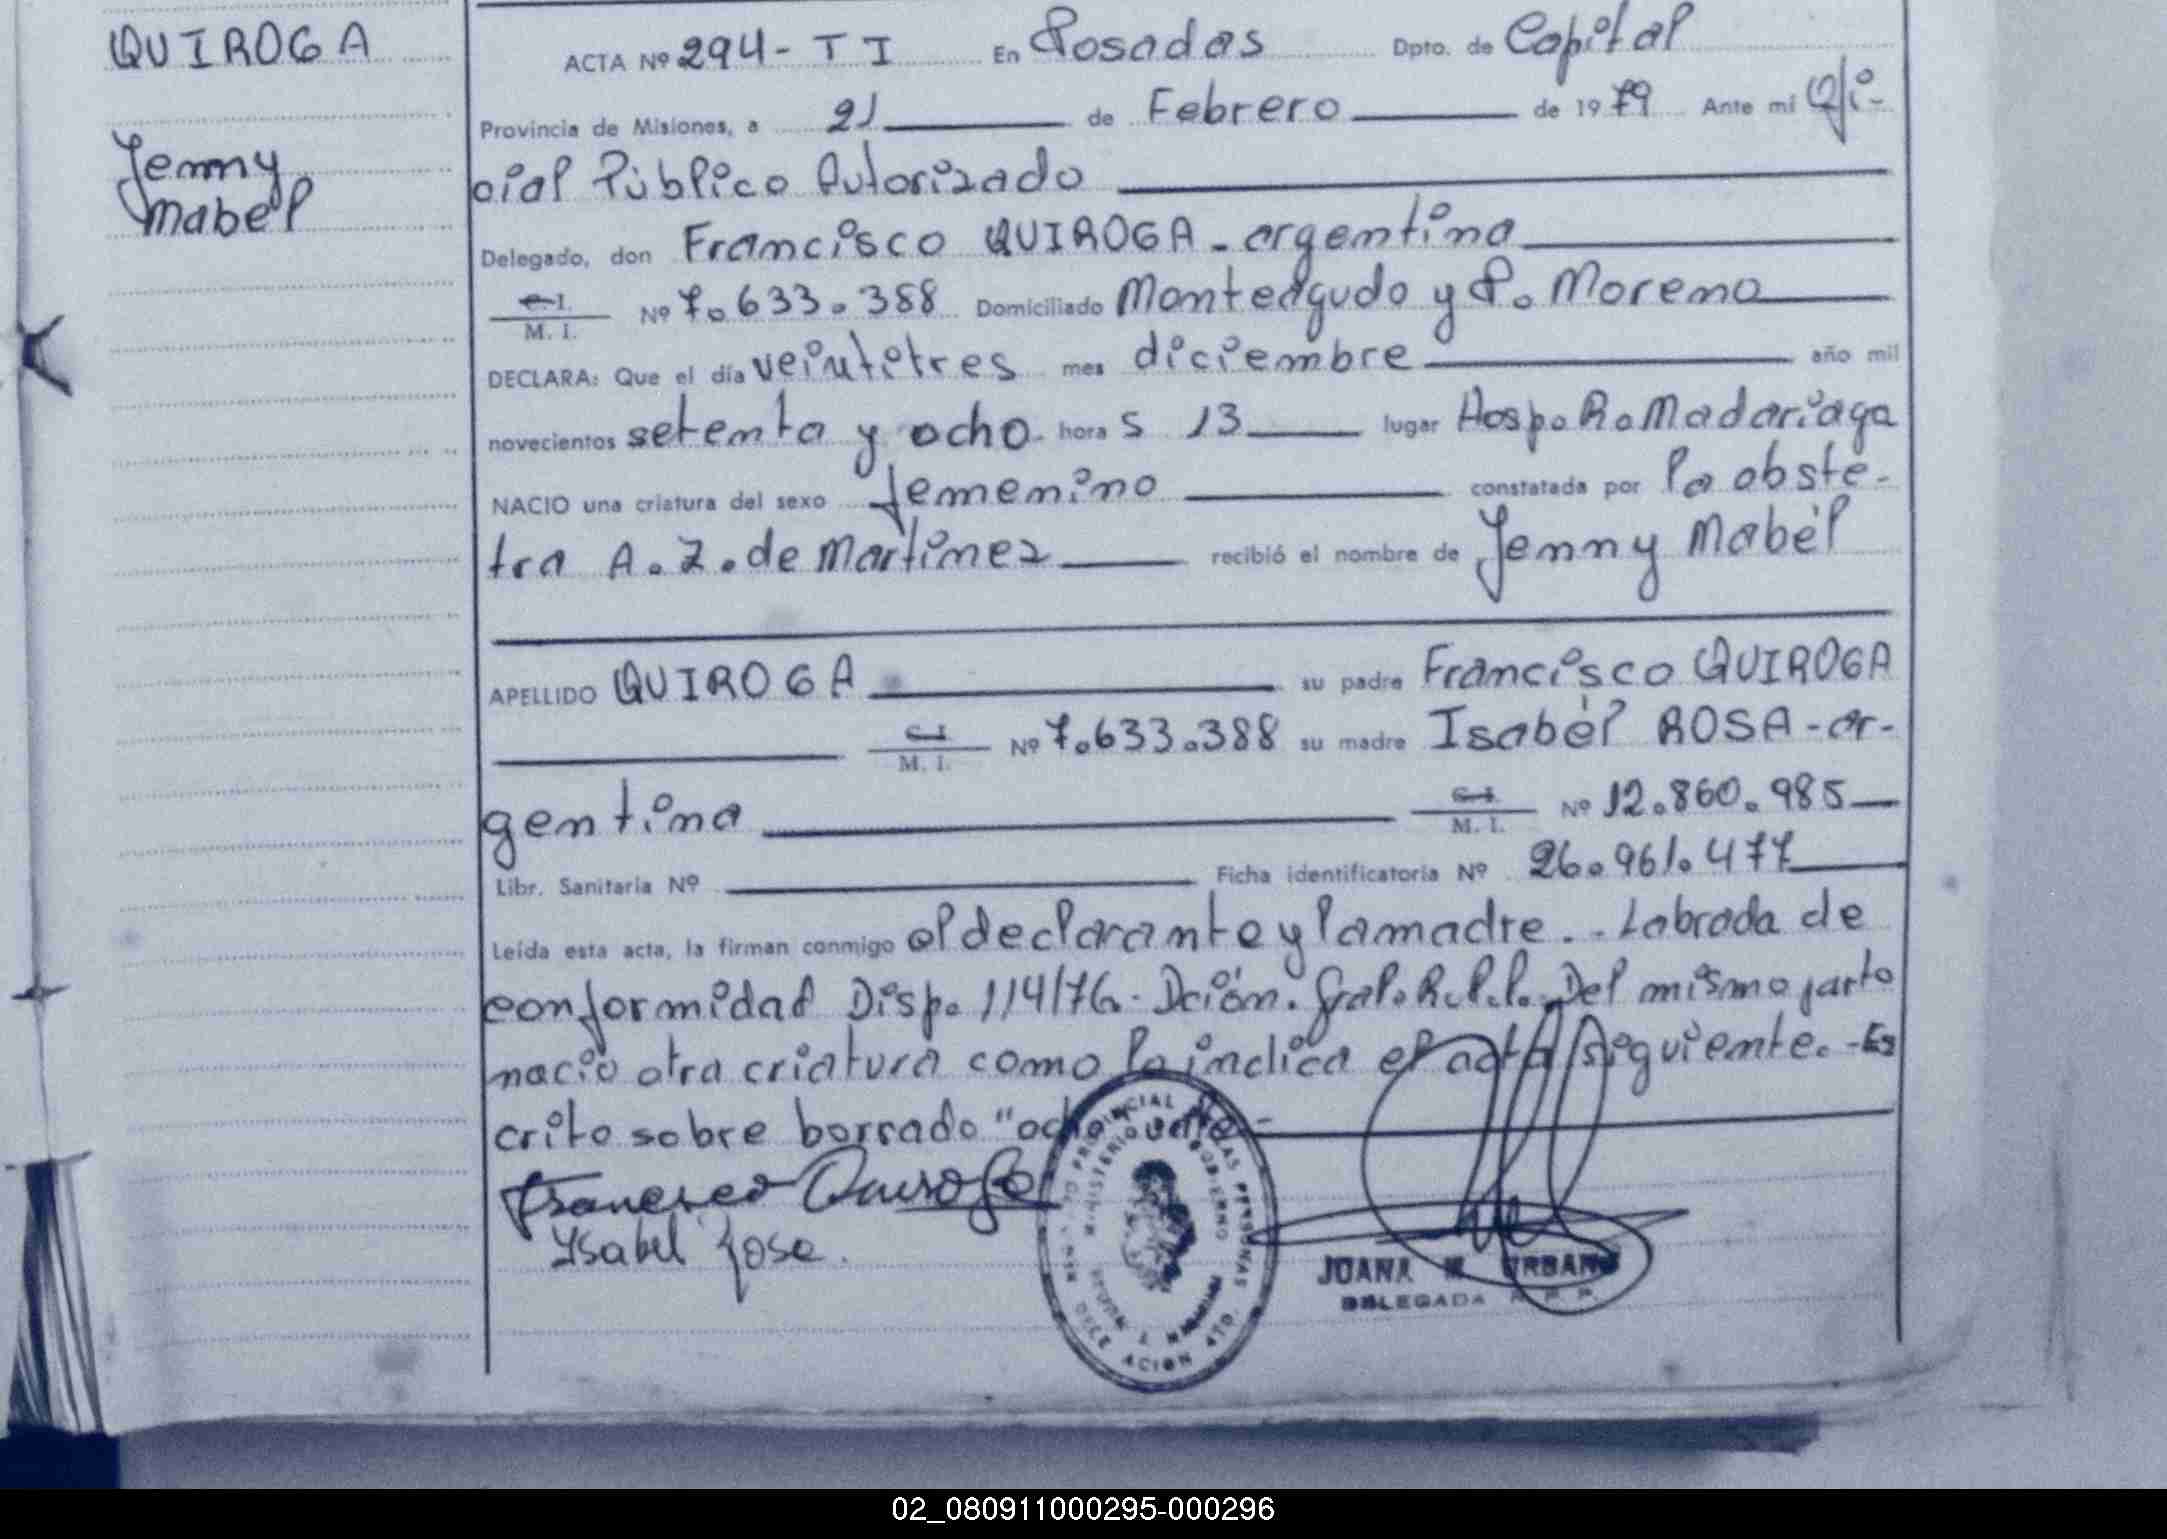 QUIROGA
Jenny
Mabel
ACTA Nº 294 - T I En Posadas Dpto. de Capital
Provincia de Misiones, a 21 de Febrero de 1979 Ante mí Ofi-
cial Público Autorizado
Delegado, don Francisco QUIROGA - argentina
C.I.
M. I. Nº 7.633.388 Domiciliado Monteagudo y P. Moreno
DECLARA: Que el día veintitres mes diciembre año mil
novecientos setenta y ocho hora s 13 lugar Hosp. R. Madariaga
NACIO una criatura del sexo femenino constatada por la obste-
tra A. Z. de Martinez recibió el nombre de Jenny Mabel
APELLIDO QUIROGA su padre Francisco QUIROGA
C.I.
M. I. Nº 7.633.388 su madre Isabel ROSA - ar-
gentina C.I.
M. I. Nº 12.860.985
Libr. Sanitaria Nº Ficha identificatoria Nº 26.961.477
Leída esta acta, la firman conmigo el declarante y la madre. - Labrada de
conformidad Disp. 114/76. Dción. Gral. R.P.P. Del mismo parto
nació otra criatura como lo indica el acta siguiente. - Es
crito sobre borrado "ocho
Francisco Quiroga
Ysabel Rosa.
MINISTERIO DE GOBIERNO
JUANA M. URBANO
DELEGADA R. P. P.
02_080911000295-000296